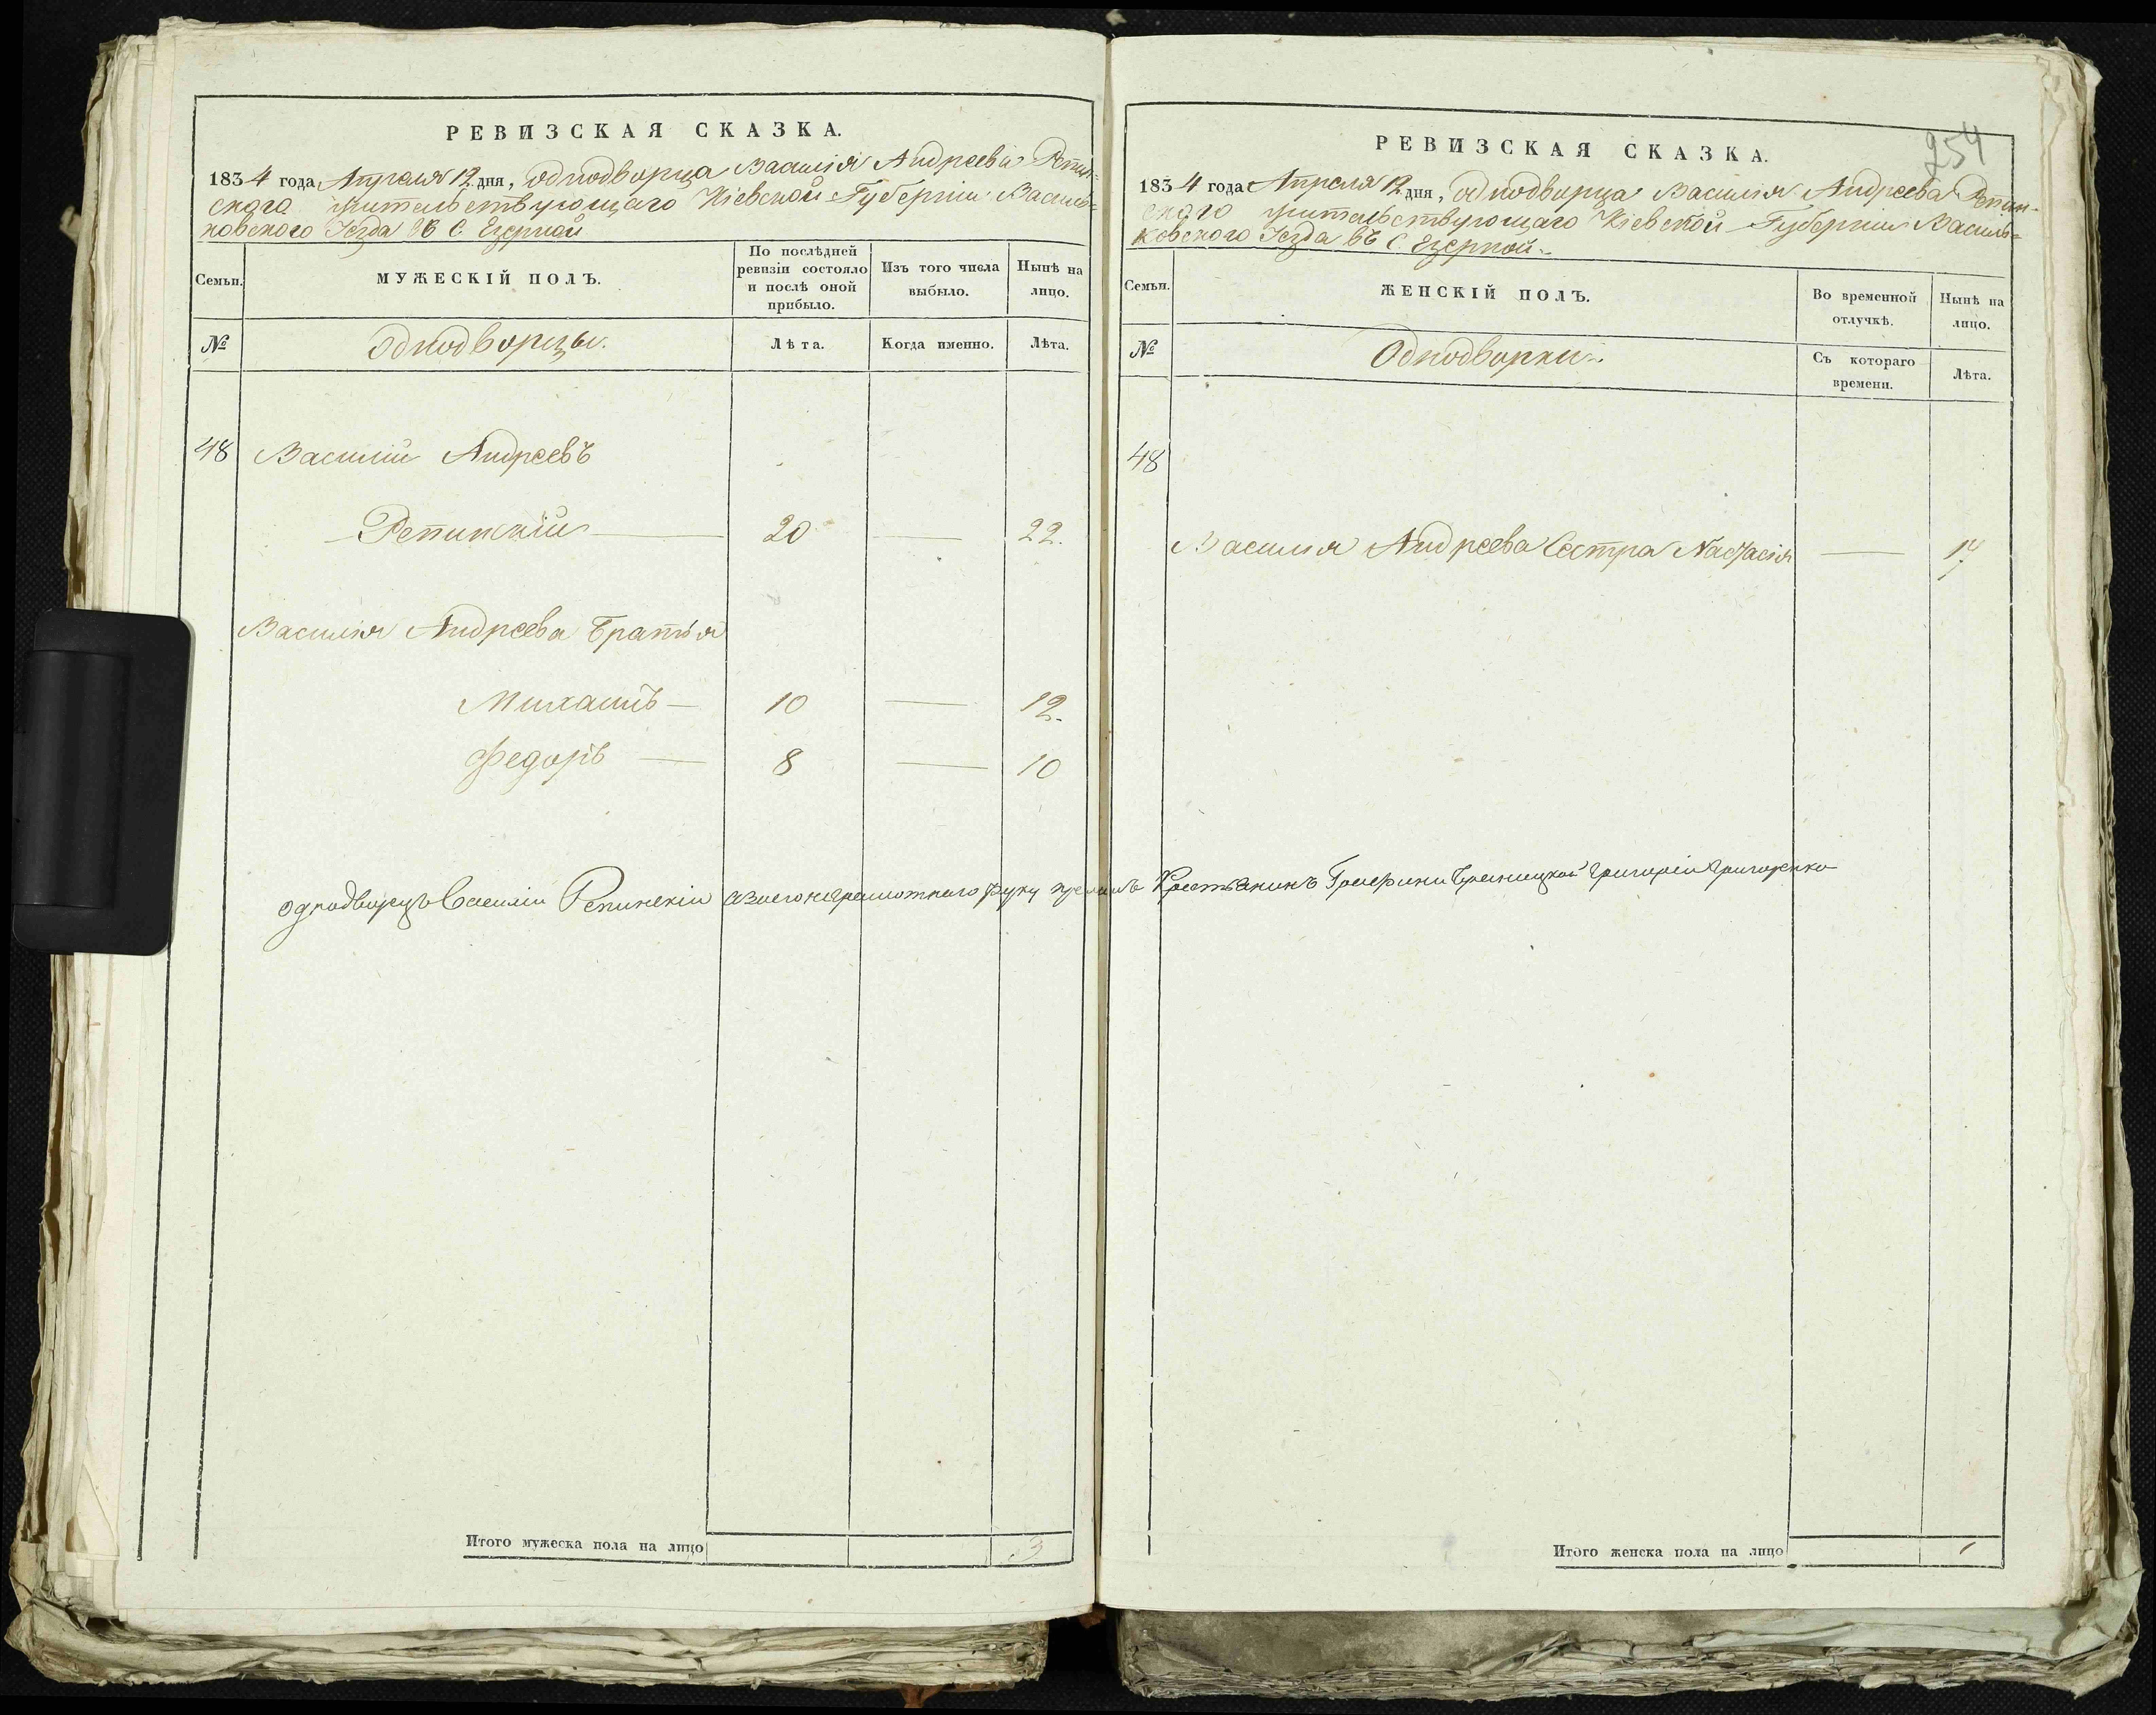 РЕВИЗСКАЯ СКАЗКА.
1834 года Апреля 12 дня, однодворца Василія Андреева Репин-
ского жительствующаго Кіевской Губерніи Василь=
ковскаго Уезда въ С. Езерной
Семьи.
МУЖЕСКІЙ ПОЛЪ.
По послѣдней
ревизіи состояло
и послѣ оной
прибыло.
Изъ того числа
выбыло.
Нынѣ на
лицо.
№
Однодворцы.
Лѣта.
Когда именно.
Лѣта.
48 Василій Андреевъ
Репинскій 20 — 22.
Василія Андреева Братья
Михаилъ — 10 — 12.
Федоръ — 8 — 10
однодворецъ Василій Репинскій а вместо неграмотнаго руку приложилъ Крестьянинъ Графини Браницкой Григорій Григоренко
Итого мужеска пола на лицо 3
254
РЕВИЗСКАЯ СКАЗКА.
1834 года Апреля 12 дня, однодворца Василія Андреева Репин-
ского жительствующаго Кіевской Губерніи Василь=
ковского Уезда въ С. Езерной.
Семьи.
ЖЕНСКІЙ ПОЛЪ.
Во временной
отлучкѣ.
Нынѣ на
лицо.
№
Однодворки.
Съ котораго
времени.
Лѣта.
48
Василія Андреева Сестра Настасія — 17
Итого женска пола на лицо 1